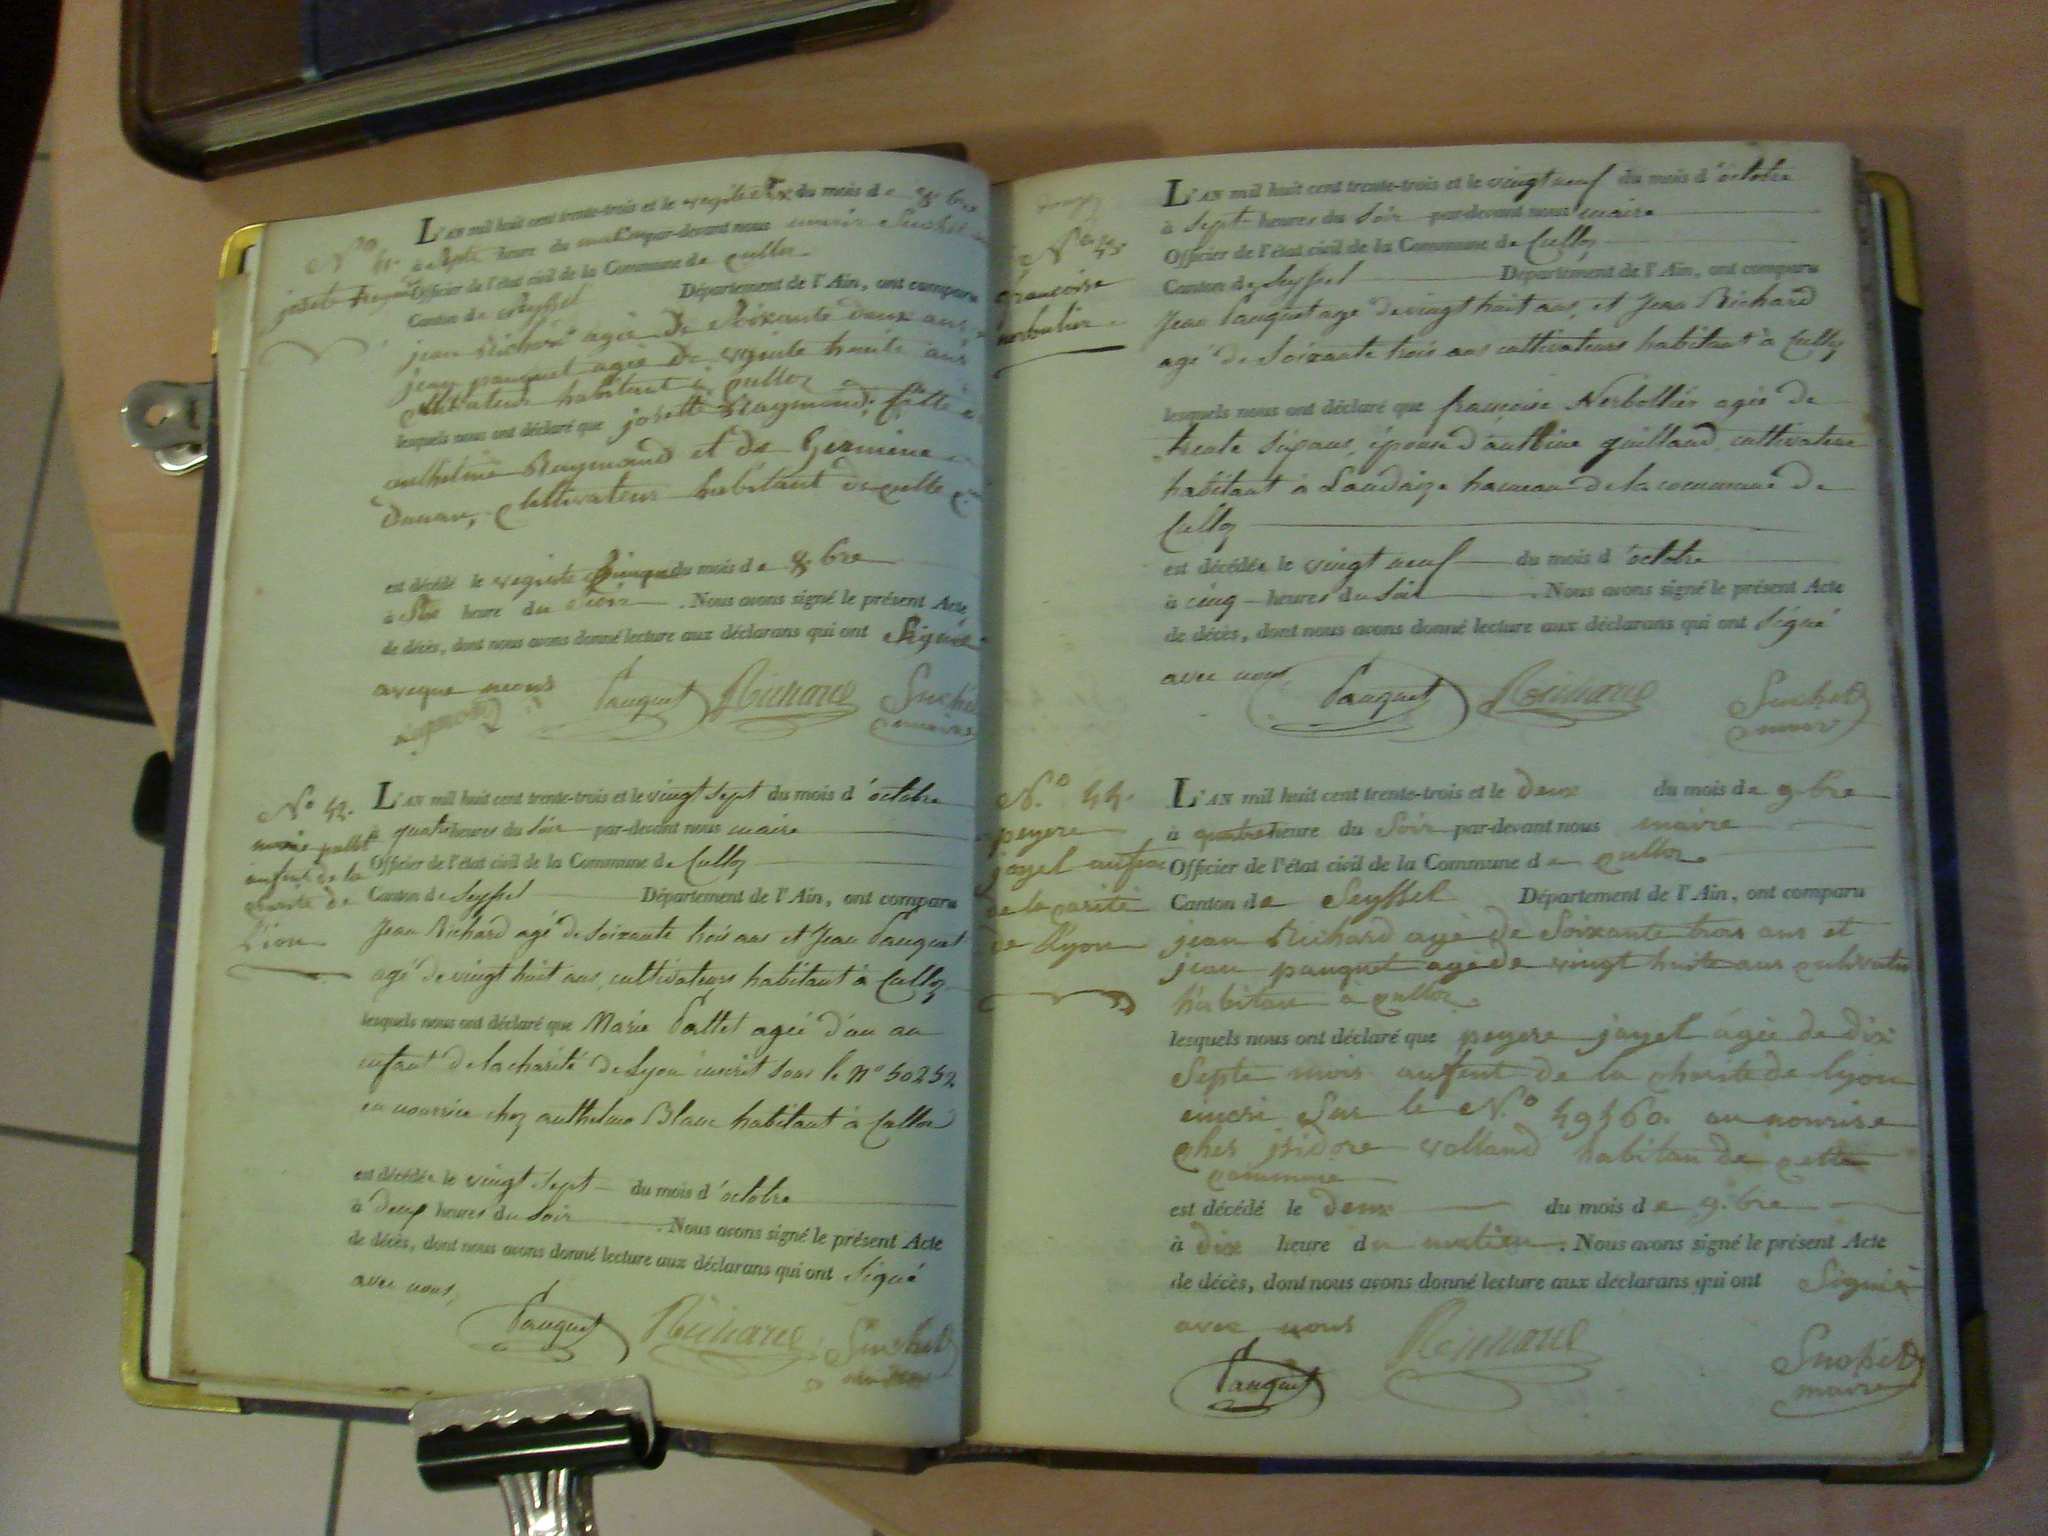 N.o 41.
josete Raymond
L'AN mil huit cent trente-trois et le du mois de 8.bre
à septe heure du matin par-devant nous maire Suchet
Officier de l'état civil de la Commune de Culloz
Canton de Seyssel Département de l'Ain, ont comparu
jean Richard agée de Soixante deux ans
jean pauquet agée de vginte huite ans
Cultivateur habitant à Culloz
lesquels nous ont déclaré que josette Raymond, fille
anthelme Raymond et de Germine
cultivateur habitant de Culle
est décédé le veginte Cinque du mois de 8.bre
à heure du Soir . Nous avons signé le présent Acte
de décès, dont nous avons donné lecture aux déclarans qui ont Signée
aveque neous
Pauquet Richard Suchet
maire
N.o 42.
marie pallet
anfent de la
charité de
Lion
L'AN mil huit cent trente-trois et le vingt sept du mois d'octobre
à quatre heures du soir par-devant nous maire
Officier de l'état civil de la Commune de Culloz
Canton de Seyssel Département de l'Ain, ont comparu
Jean Richard agé de soixante trois ans et Jean Pauquet
agé de vingt huit ans, cultivateurs habitant à Culloz
lesquels nous ont déclaré que Marie Pallet agée d'un an
enfant de la charité de Lyon inscrit sous le N.o 50252
en nourrice chez anthelme Blanc habitant à Culloz
est décédée le vingt sept du mois d'octobre
à deux heures du soir . Nous avons signé le présent Acte
de décès, dont nous avons donné lecture aux déclarans qui ont signé
avec nous,
Pauquet Richard Suchet
maire
N.o 43
francoise
nerbolier
L'AN mil huit cent trente-trois et le vingt neuf du mois d'octobre
à sept heures du soir par-devant nous maire
Officier de l'état civil de la Commune de Culloz
Canton de Seyssel Département de l'Ain, ont comparu
Jean Pauquet agé de vingt huit ans, et Jean Richard
agé de soixante trois ans cultivateurs habitant à Culloz
lesquels nous ont déclaré que françoise Nerbollier agée de
trente six ans, épouse d'anthme guilland cultivateur
habitant à Landaize hameau de la commune de
Culloz
est décédée le vingt neuf du mois d'octobre
à cinq heures du soir . Nous avons signé le présent Acte
de décès, dont nous avons donné lecture aux déclarans qui ont signé
avec nous,
Pauquet Richard Suchet
maire
N.o 44.
peyere
jayel anfan
de la carite
de Lyon
L'AN mil huit cent trente-trois et le deux du mois de 9.bre
à quatre heure du Soir par-devant nous maire
Officier de l'état civil de la Commune de Culloz
Canton de Seyssel Département de l'Ain, ont comparu
jean Richard agé de Soixante trois ans et
jean pauquet agé de vingt huite ans culivateur
habitan à Culloz
lesquels nous ont déclaré que peyere jayel âgée de dix
Septe mois anfent de la charite de lyon
encri Sur le N.o 49460. an nourise
ches jsidore volland habitan de cette
commune
est décédé le deux du mois de 9.bre
à dix heure du matien . Nous avons signé le présent Acte
de décès, dont nous avons donné lecture aux déclarans qui ont Signée
avec nous
Pauquet Richard Suchet
maire